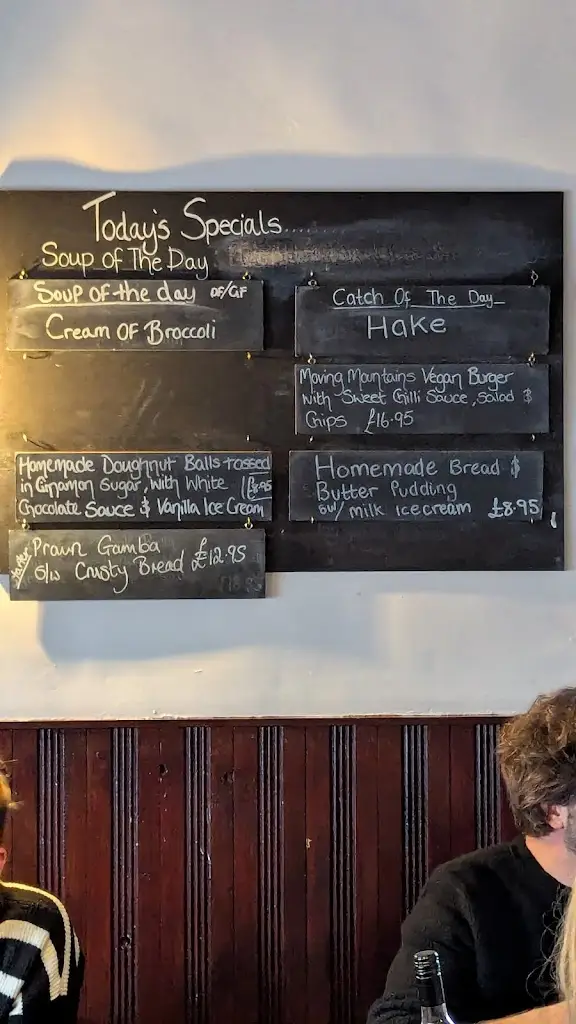 Today's Specials......
Soup of The Day
Soup of the day DF/GF
Cream OF Broccoli
Catch Of The Day
Hake
Moving Mountains Vegan Burger
with Sweet Chilli Sauce, Salad &
Chips £16.95
Homemade Doughnut Balls tossed
in Cinnamon Sugar, with White £8.95
Chocolate Sauce & Vanilla Ice Cream
Homemade Bread &
Butter Pudding
w/ milk icecream £8.95
Starter
Prawn Gamba
S/w Crusty Bread £12.95